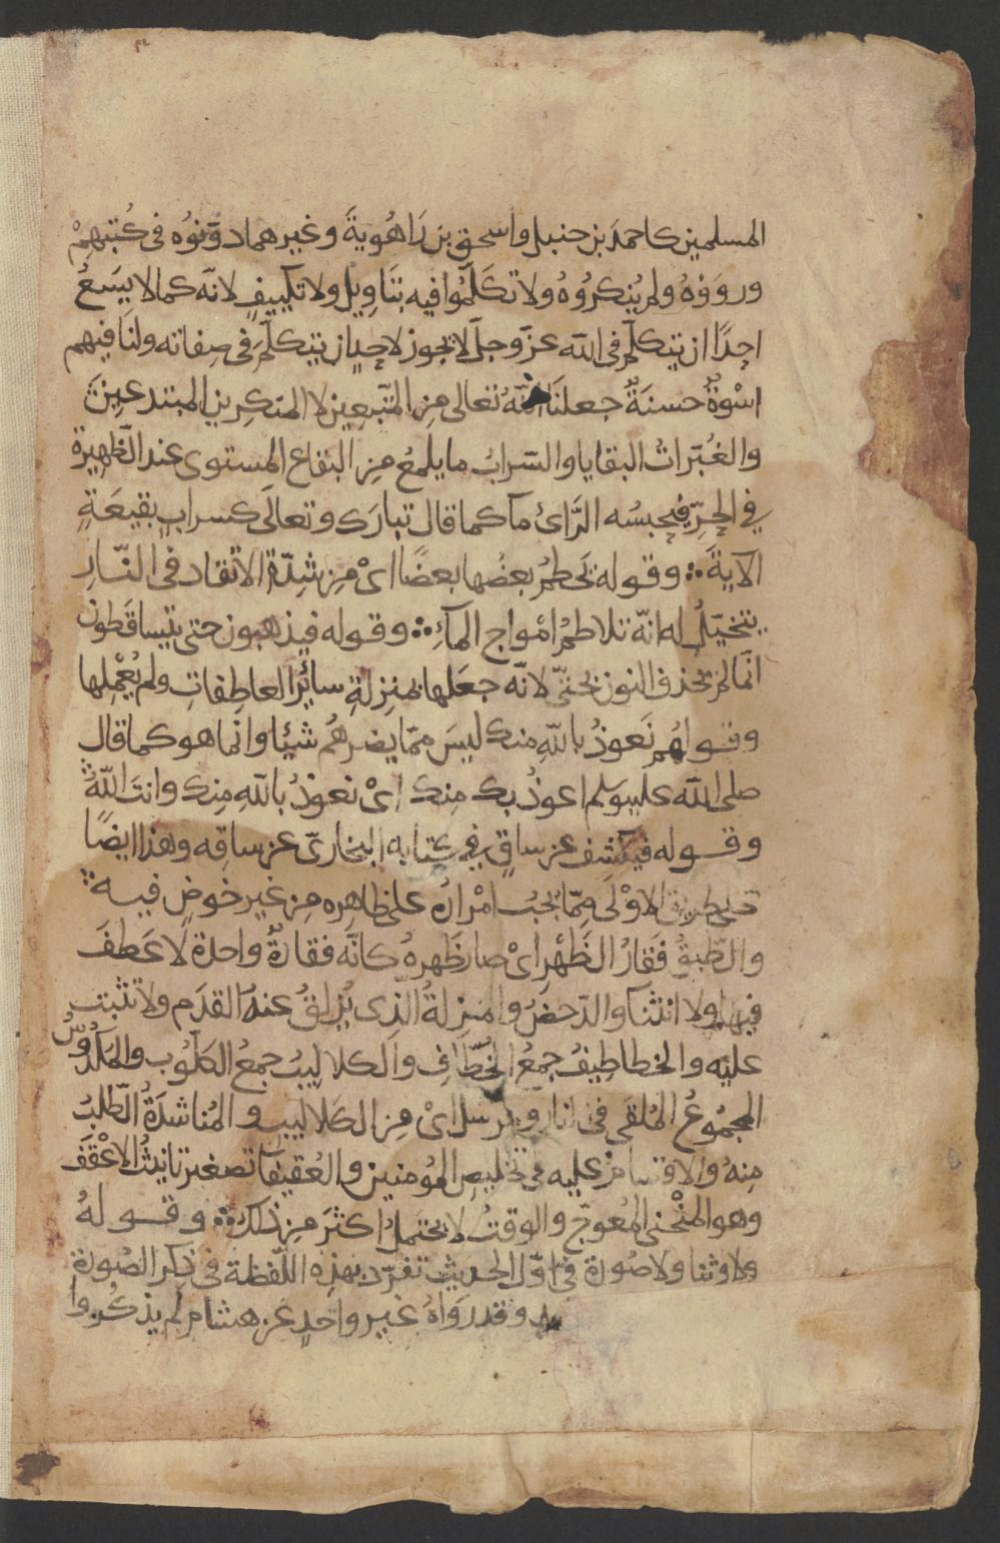 المسلمين كاحمد بن حنبل واسحق بن راهُويةَ وغيرهما دوَّنوُه فى كُتبهِمْ
وروَوْهُ ولم يُنكروُهُ ولا تكَلَّمُوا فيه بتَاوِيل ولا تكييفٍ لانّه كما لا يسَعُ
احدًا ان يتكلّم فى الله عزّ وجلّ لا يجوز لاحدٍ ان يتكلّمَ فى صِفاته ولنا فيهم
اسْوةٌ حسنَةٌ جعلنَا الله تعالى مِن المتّبعِين لا المنكرِين المبتدعِينَ
والغُبَّراتُ البقايا والسّرابُ ما يلمعُ مِن البقاع المستوى عند الظّهيرة
فى الحرِّ فيحبسُه الرَّائ مآ كما قال تبارَك وتعالَى كسرابٍ بقيعَةٍ
الايةَ ∴ وقوله يَحطمُ بعضُها بعضًا اىْ مِن شِدّةِ الاتّقاد فى النّارِ
يتخيّلُ له انّه تلاطمُ امْواج المآءِ ∴ وقوله فيذهبون حتى يتساقَطون
انّما لم تحذف النون بحتىّ لانّه جعَلها بمنزلةِ سائرِ العاطِفاتِ ولم يُعْمِلها
وقولهُم نَعوذُ بالله منك ليسَ ممّا يضرهُم شيئا وانما هو كما قال
صلى الله عليه وسلم اعوذُ بك مِنك اىْ نعوذُ بالله مِنك وانتَ اللهُ
وقوله فيكشِف عن ساقٍ وفى كتابه البخارىّ عن ساقِه وهذا ايضًا
على طريق الاوْلى مِمّا يجبُ امْرارُه على ظاهِره مِن غير خوضٍ فيه ∴
والطّبقُ فَقَارُ الظَهْرِ اىْ صار ظَهرهُ كانّه فقارةٌ واحدة لا عَطفَ
فيها ولا انثنآ والدّحضُ والمَنزِلةُ الذى يُزلقُ عندَ القدَم ولا تثبت
عليْه والخطاطِيفُ جمعُ الخُطّافِ والكلاليبُ جمعُ الكلّوُب والمكدُوسُ
المجمُوعُ المُلقَى فى النار ومرسل اىْ مِن الكَلاليب والمُناشدَةُ الطّلبُ
مِنهُ والاقتسام عليه فى تخليصِ المؤمنين والعُقيفآ تصغير تانيثُ الاعْقَفَ
وهو المنْحْنى المُعوجّ والوقتُ لا يحتملُ اكثرَ مِن ذلك ∴ وقوله
ولا وثنا ولا صُورة فى اوّل الحديث تفرّد بهذِه اللّفظة فى ذِكر الصُورة
وقد رَواهُ غير واحدٍ عن هشام لم يذكُروا